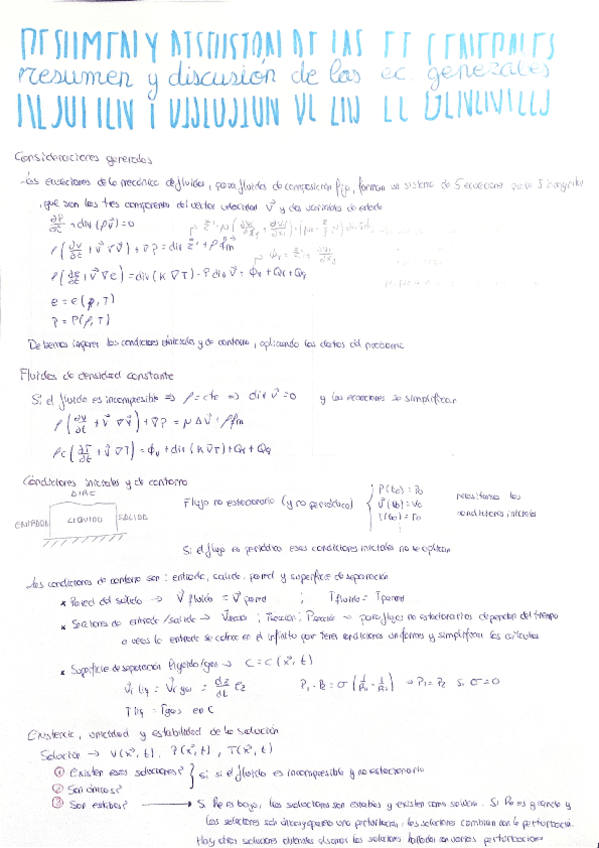 RESUMEN Y DISCUSIÓN DE LAS EC GENERALES
resumen y discusión de las ec. generales
Consideraciones generales
Las ecuaciones de la mecánica de fluidos, para fluidos de composición fija, forman un sistema de 5 ecuaciones para 5 incognitas
, que son las tres componentes del vector velocidad V⃗ y dos variables de estado
∂ρ/∂t + div (ρv⃗) = 0
ρ(∂v⃗/∂t + v⃗ ∇v⃗) + ∇P = div τ⃗' + ρf⃗m
ρ(∂e/∂t + v⃗ ∇e) = div (K ∇T) - P div v⃗ + Φv + Qr + Qq
e = e(ρ, T)
P = P(ρ, T)
Debemos imponer las condiciones iniciales y de contorno, aplicando los datos del problema
Fluidos de densidad constante
Si el fluido es incompresible ⇒ ρ = cte ⇒ div v⃗ = 0 y las ecuaciones se simplifican
ρ(∂v⃗/∂t + v⃗ ∇v⃗) + ∇P = μ Δv⃗ + ρf⃗m
ρc(∂T/∂t + v⃗ ∇T) = Φv + div (K ∇T) + Qr + Qq
Condiciones iniciales y de contorno
AIRE
ENTRADA LIQUIDO SALIDA
Flujo no estacionario (y no periódico) { P(t0) = P0
V⃗(t0) = V0
T(t0) = T0
necesitamos las
condiciones iniciales
Si el flujo es periódico esas condiciones iniciales no se aplican
Las condiciones de contorno son: entrada, salida, pared y superficie de separación
* Pared del solido → V⃗ fluido = V⃗ pared ; T fluido = T pared
* Secciones de entrada/salida → para flujos no estacionarios dependen del tiempo
a veces la entrada se coloca en el infinito por tener condiciones uniformes y simplifican los cálculos
* Superficie de separación líquido/gas → C = C(x⃗, t)
V⃗ liq = V⃗ gas P1 - P2 = σ ⇒ P1 = P2 si σ = 0
T liq = T gas en C
Existencia, unicidad y estabilidad de la solución
Solución → V(x⃗, t), P(x⃗, t), T(x⃗, t)
① Existen esas soluciones? } si si el fluido es incompresible y no estacionario
② Son únicas?
③ Son estables? → Si Re es bajo, las soluciones son estables y existen como solución. Si Re es grande y
las soluciones son únicas y una perturbación, las soluciones cambian con la perturbación.
Hay otras soluciones